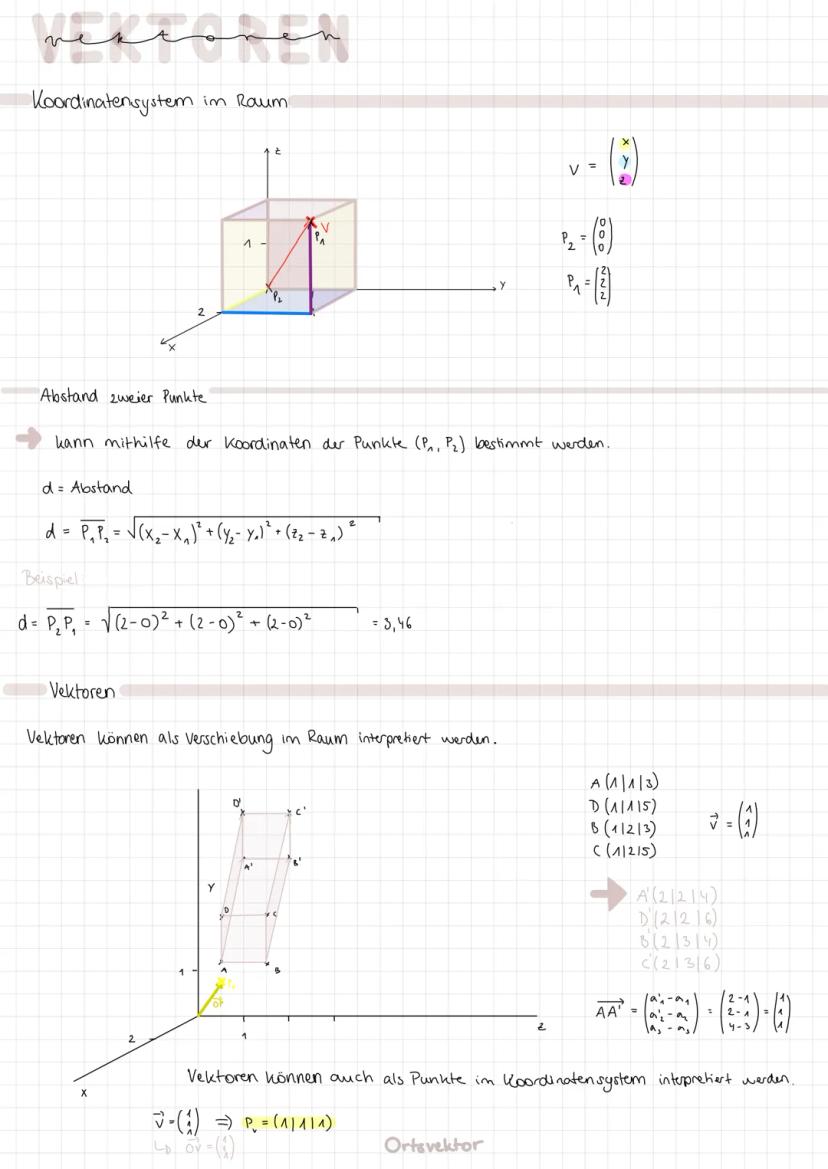 VEKTOREN
vektoren
Koordinatensystem im Raum
z
V = (x y z)
1
V
P₁
P₂ = (0 0 0)
P₂
Y
P₁ = (2 2 2)
2
X
Abstand zweier Punkte
kann mithilfe der Koordinaten der Punkte (P₁, P₂) bestimmt werden.
d = Abstand
d = P₁P₂ = √(x₂-x₁)² + (y₂-y₁)² + (z₂-z₁)²
Beispiel
d = P₂P₁ = √(2-0)² + (2-0)² + (2-0)² = 3,46
Vektoren
Vektoren können als Verschiebung im Raum interpretiert werden.
A (1|1|3)
D (1|1|5)
B (1|2|3)
C (1|2|5)
v⃗ = (1 1 1)
D' C'
A' B'
Y
D C
A B
1
2
1
z
X
A'(2|2|4)
D'(2|2|6)
B(2|3|4)
C'(2|3|6)
AA' = (a'₁-a₁ a'₂-a₂ a₃-a₃) = (2-1 2-1 4-3) = (1 1 1)
Vektoren können auch als Punkte im Koordinatensystem interpretiert werden.
v⃗ = (1 1 1) ⇒ Pᵥ = (1|1|1)
↳ OV = (1 1 1)
Ortsvektor